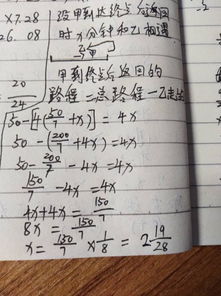 ×7.28
26.08
20
24
设甲到达终点后返回
时x分钟和乙相遇
甲到终点后返回的
路程=总路程-乙走的
50-[4(50/7+x)]=4x
50-(200/7+4x)=4x
50-200/7-4x=4x
150/7-4x=4x
4x+4x=150/7
8x=150/7
x=150/7×1/8=2 19/28